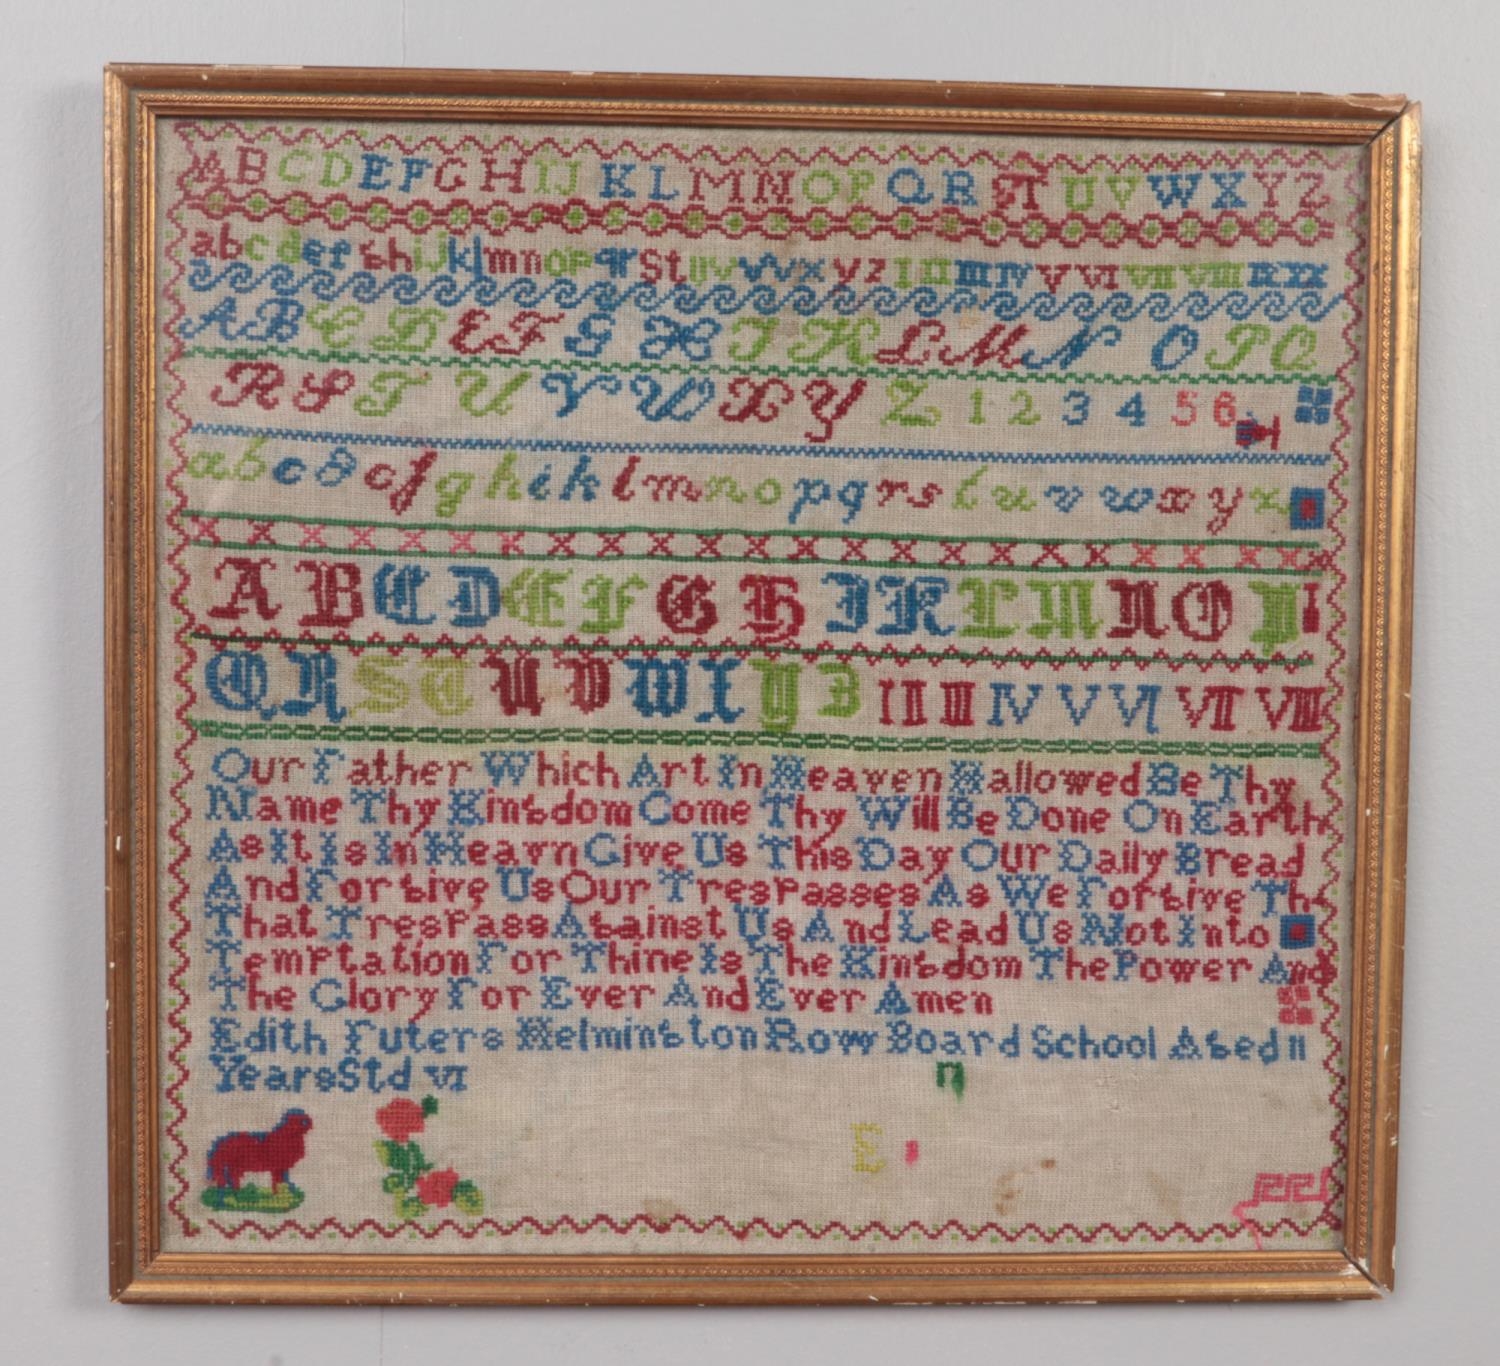 ABCDEFGHIJKLMNOPQRSTUVWXYZ
abcdefghijklmnopqrstuvwxyz I II III IV V VI VII VIII IX X
ABCDEFGHIKLMNOPQ
RSTUVWXYZ 1 2 3 4 5 6
abcdefghiklmnopqrstuvwxyz
ABCDEFGHIKLMNOP
QRSTUVWXYZ I II III IV V VI VII VIII
Our Father Which Art In Heaven Hallowed Be Thy
Name Thy Kingdom Come Thy Will Be Done On Earth
As It Is In Heavn Give Us This Day Our Daily Bread
And Forgive Us Our Trespasses As We Forgive Th
That Trespass Against Us And Lead Us Not Into
Temptation For Thine Is The Kingdom The Power And
The Glory For Ever And Ever Amen
Edith Futers Helmington Row Board School Aged 11
Years Std VI
n
E